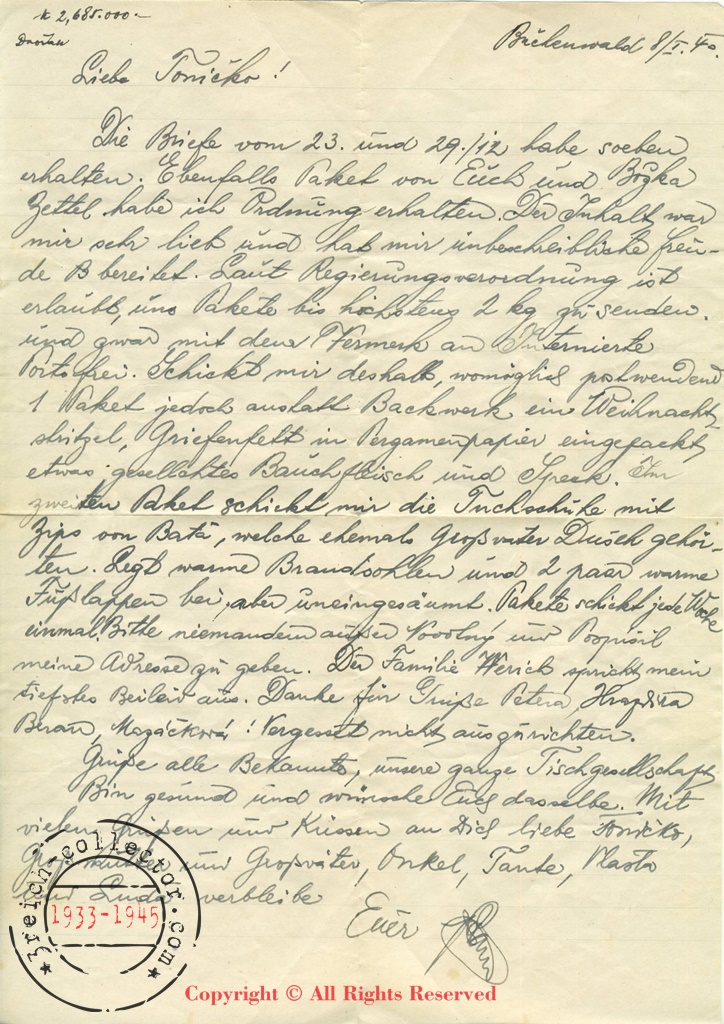 K 2,685.000.-
Buchenwald 8/I. 40.
Liebe Toničko!
Die Briefe vom 23. und 29./12 habe soeben
erhalten. Ebenfalls Paket von Euch und Božka
Zettel habe ich Ordnung erhalten. Der Inhalt war
mir sehr lieb und hat mir unbeschreibliche Freu-
de B bereitet. Laut Regierungsverordnung ist
erlaubt, uns Pakete bis höchstens 2 kg zu senden.
und zwar mit dem Vermerk an Internierte
Portofrei. Schickt mir deshalb, womöglich postwendend
1 Paket jedoch anstatt Backwerk ein Weihnachts-
stritzel, Griefenfett in Pergamenpapier eingepackt,
etwas gesellchtes Bauchfleisch und Speck. Im
zweiten Paket schickt mir die Tuchschuhe mit
Zips von Bata, welche ehemals Großvater Dusch gehör-
ten. Legt warme Brandsohlen und 2 paar warme
Fußlappen bei, aber uneingesäumt. Pakete schickt jede Woche
einmal. Bitte niemandem außer Novotný und Pospíšil
meine Adresse zu geben. Der Familie Werich spricht mein
tiefstes Beileid aus. Danke für Grüße Petera,
Beran, Mazáčková! Vergesset nicht, auszurichten.
Grüße alle Bekannte, unsere ganze Tischgesellschaft,
Bin gesund und wünsche Euch dasselbe. Mit
vielen Grüßen und Küssen an Dich liebe Toničko,
Großmutter und Großväter, Onkel, Tante, Vlasta
und Luda verbleibe
Euer
3reich-collector.com
1933-1945
Copyright © All Rights Reserved